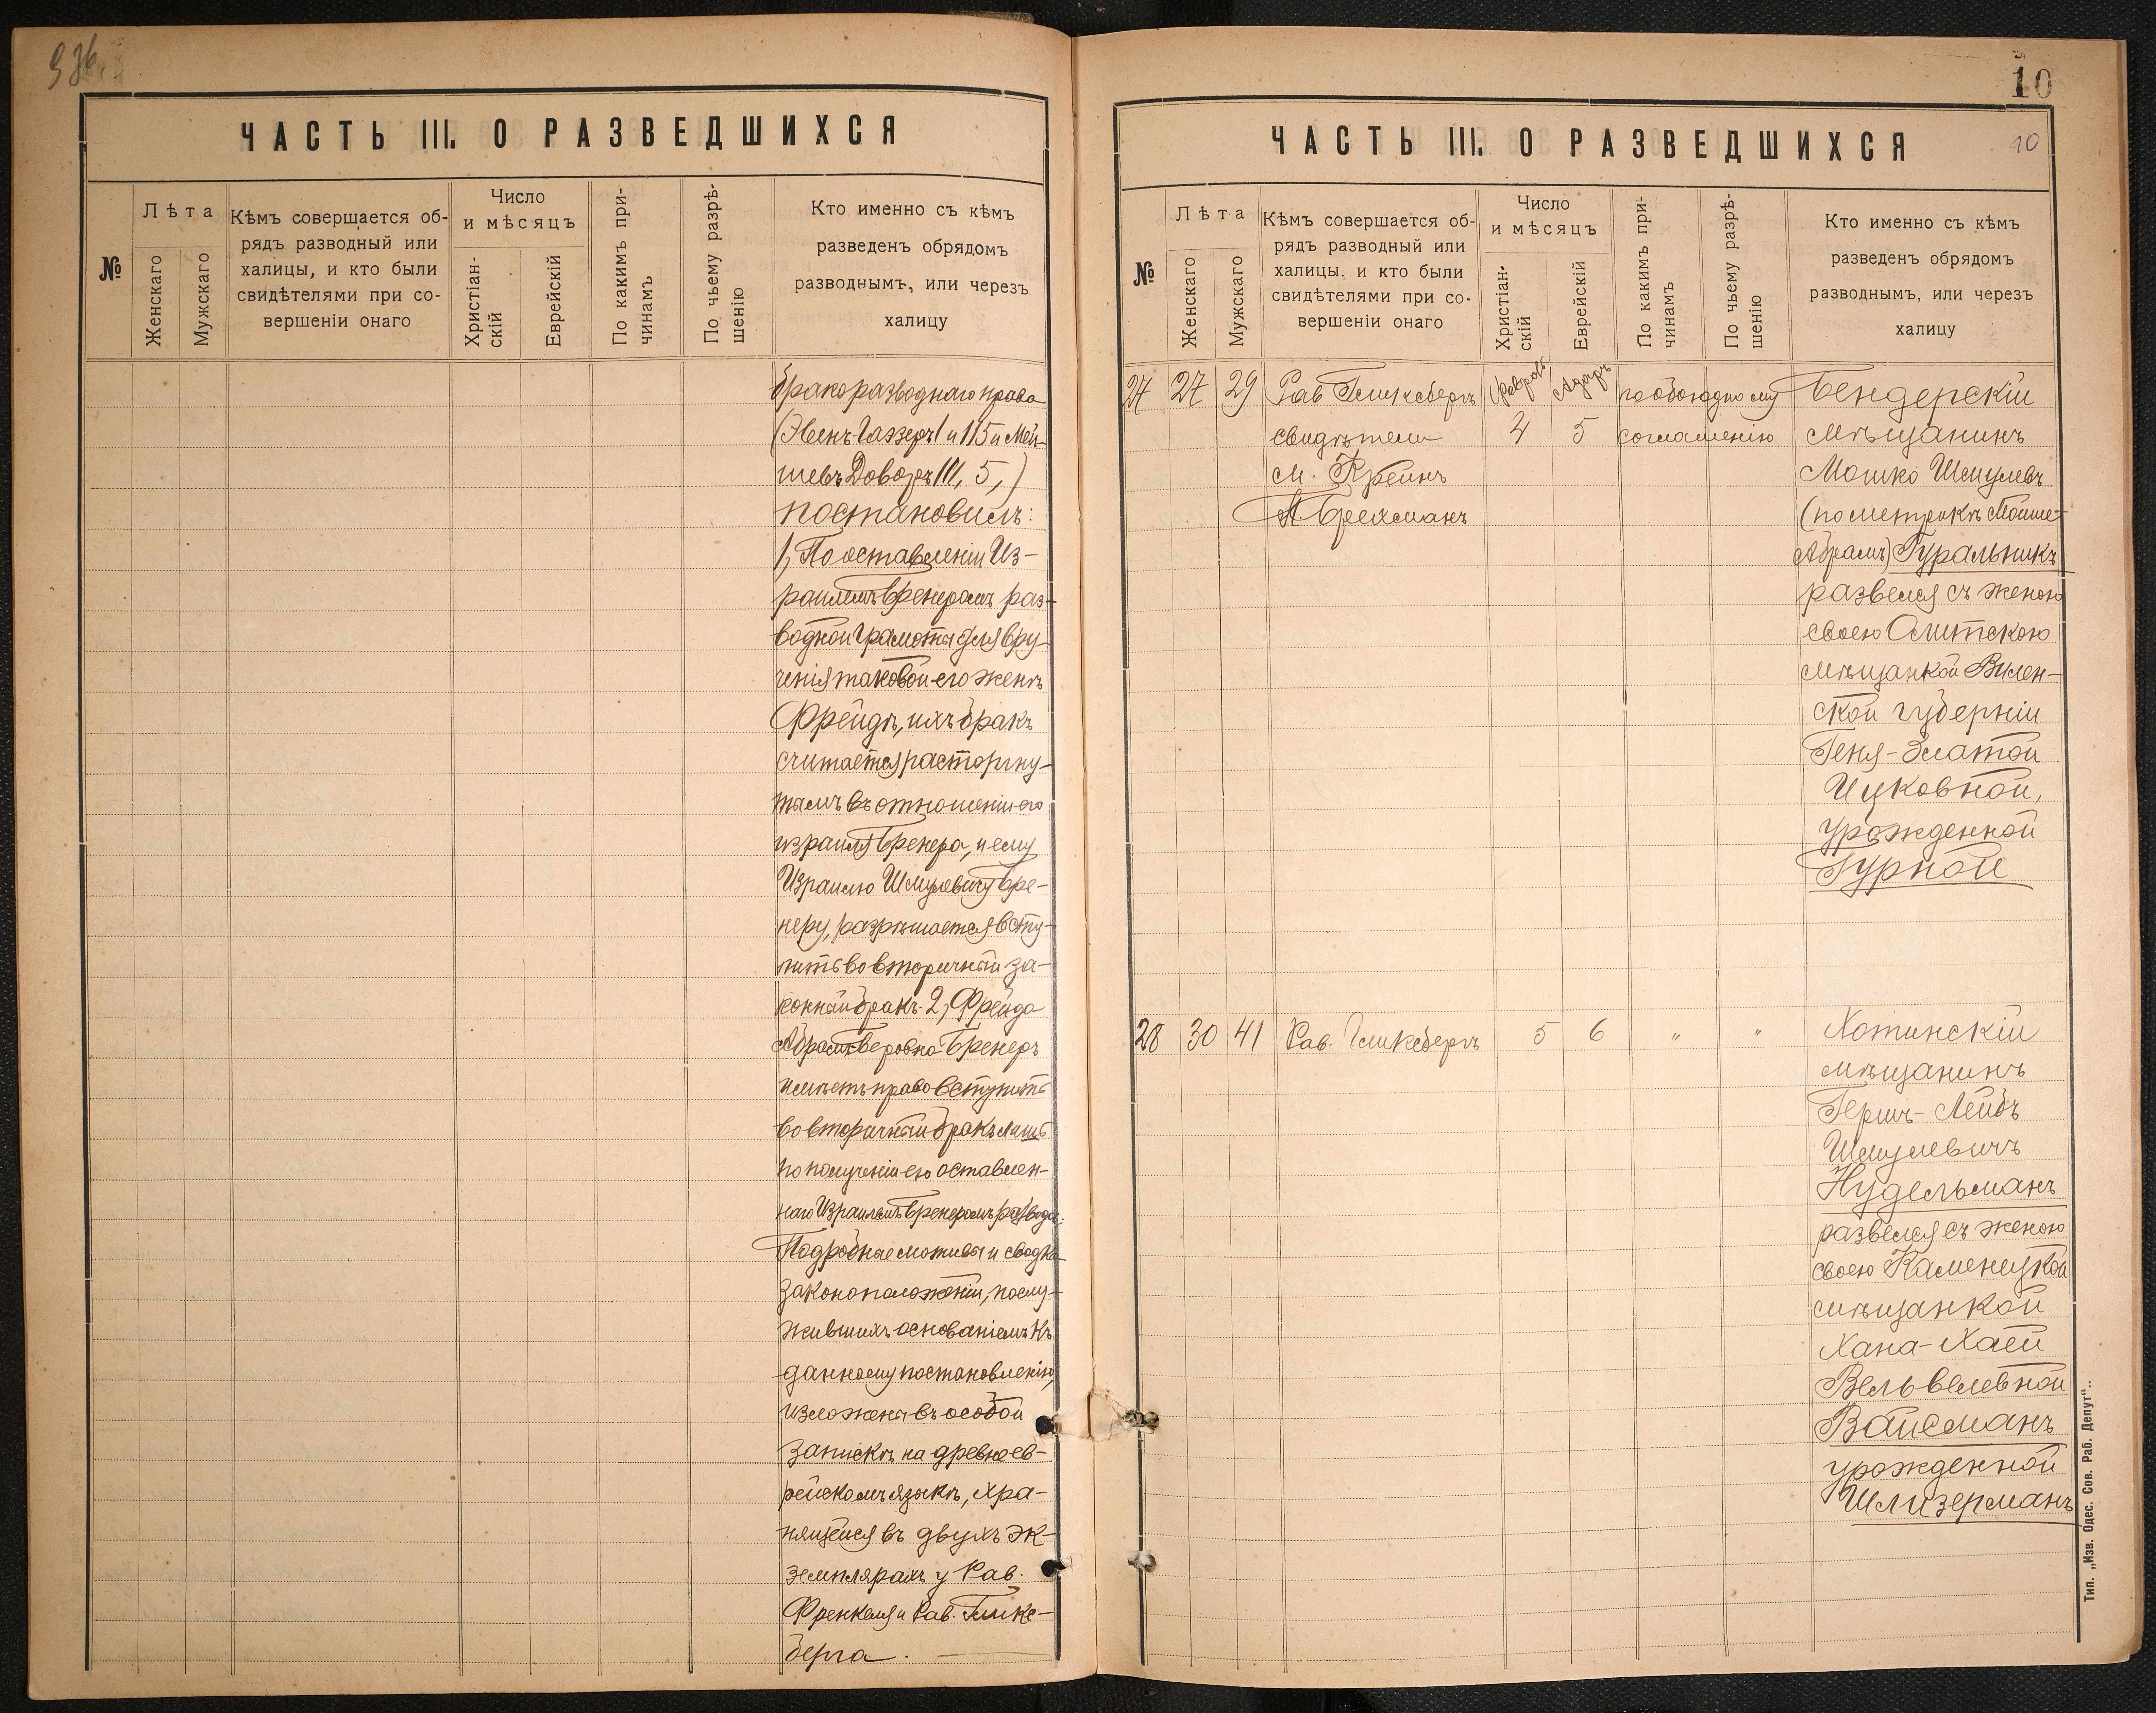 936
ЧАСТЬ III. О РАЗВЕДШИХСЯ
№
Лѣта
Женскаго
Мужскаго
Кѣмъ совершается об-
рядъ разводный или
халицы, и кто были
свидѣтелями при со-
вершеніи онаго
Число
и мѣсяцъ
Христіан-
скій
Еврейскій
По какимъ при-
чинамъ
По чьему разрѣ-
шенію
Кто именно съ кѣмъ
разведенъ обрядомъ
разводнымъ, или черезъ
халицу
бракоразводнаго права
(Эвенъ-Гаэзеръ 1 и 115 и
Доворъ III, 5,)
постановилъ:
1, По оставленіи Из-
раилемъ Бренеромъ раз-
водной грамоты для вру-
ченія таковой его женѣ
Фрейдѣ, ихъ бракъ
считается расторгну-
тымъ въ отношеніи его
Израиля Бренера, и ему
Израилю Шмулевичу Бре-
неру, разрѣшается всту-
пить во вторичный за-
конный бракъ. 2, Фрейда
Абрамъ-Беровна Бренеръ
имѣетъ право вступить
во вторичный бракъ лишь
по полученіи ею оставлен-
наго Израилемъ Бренеромъ развода.
Подробные мотивы и сводка
законоположеній, послу-
жившихъ основаніемъ къ
данному постановленію,
изложены въ особой
запискѣ на древнеев-
рейскомъ языкѣ, хра-
нящейся въ двухъ эк-
земплярахъ у Рав.
Френкеля и Рав. Гликс-
берга.
10
10
ЧАСТЬ III. О РАЗВЕДШИХСЯ
№
Лѣта
Женскаго
Мужскаго
Кѣмъ совершается об-
рядъ разводный или
халицы, и кто были
свидѣтелями при со-
вершеніи онаго
Число
и мѣсяцъ
Христіан-
скій
Еврейскій
По какимъ при-
чинамъ
По чьему разрѣ-
шенію
Кто именно съ кѣмъ
разведенъ обрядомъ
разводнымъ, или черезъ
халицу
27 27 29 Рав Гликсбергъ Февраль Адаръ по обоюдному Бендерскій
свидѣтели 4 5 соглашенію мѣщанинъ
М. Крейнъ Мошко Шмулевъ
Брехманъ (по метрикѣ Мойше-
Абрамъ) Гуральникъ
развелся съ женою
своею Олитскою
мѣщанкой Вилен-
ской губерніи
Геня-Златой
Ицковной,
урожденной
Гурной
28 30 41 Рав. Гликсбергъ 5 6 " " Хотинскій
мѣщанинъ
Гершъ-Лейбъ
Шмулевичъ
Нудельманъ
развелся съ женою
своею Каменецкой
мѣщанкой
Хана-Хаей
Вельвелевной
Вайсманъ
урожденной
Шлизерманъ
Тип. „Изв. Одес. Сов. Раб. Депут".